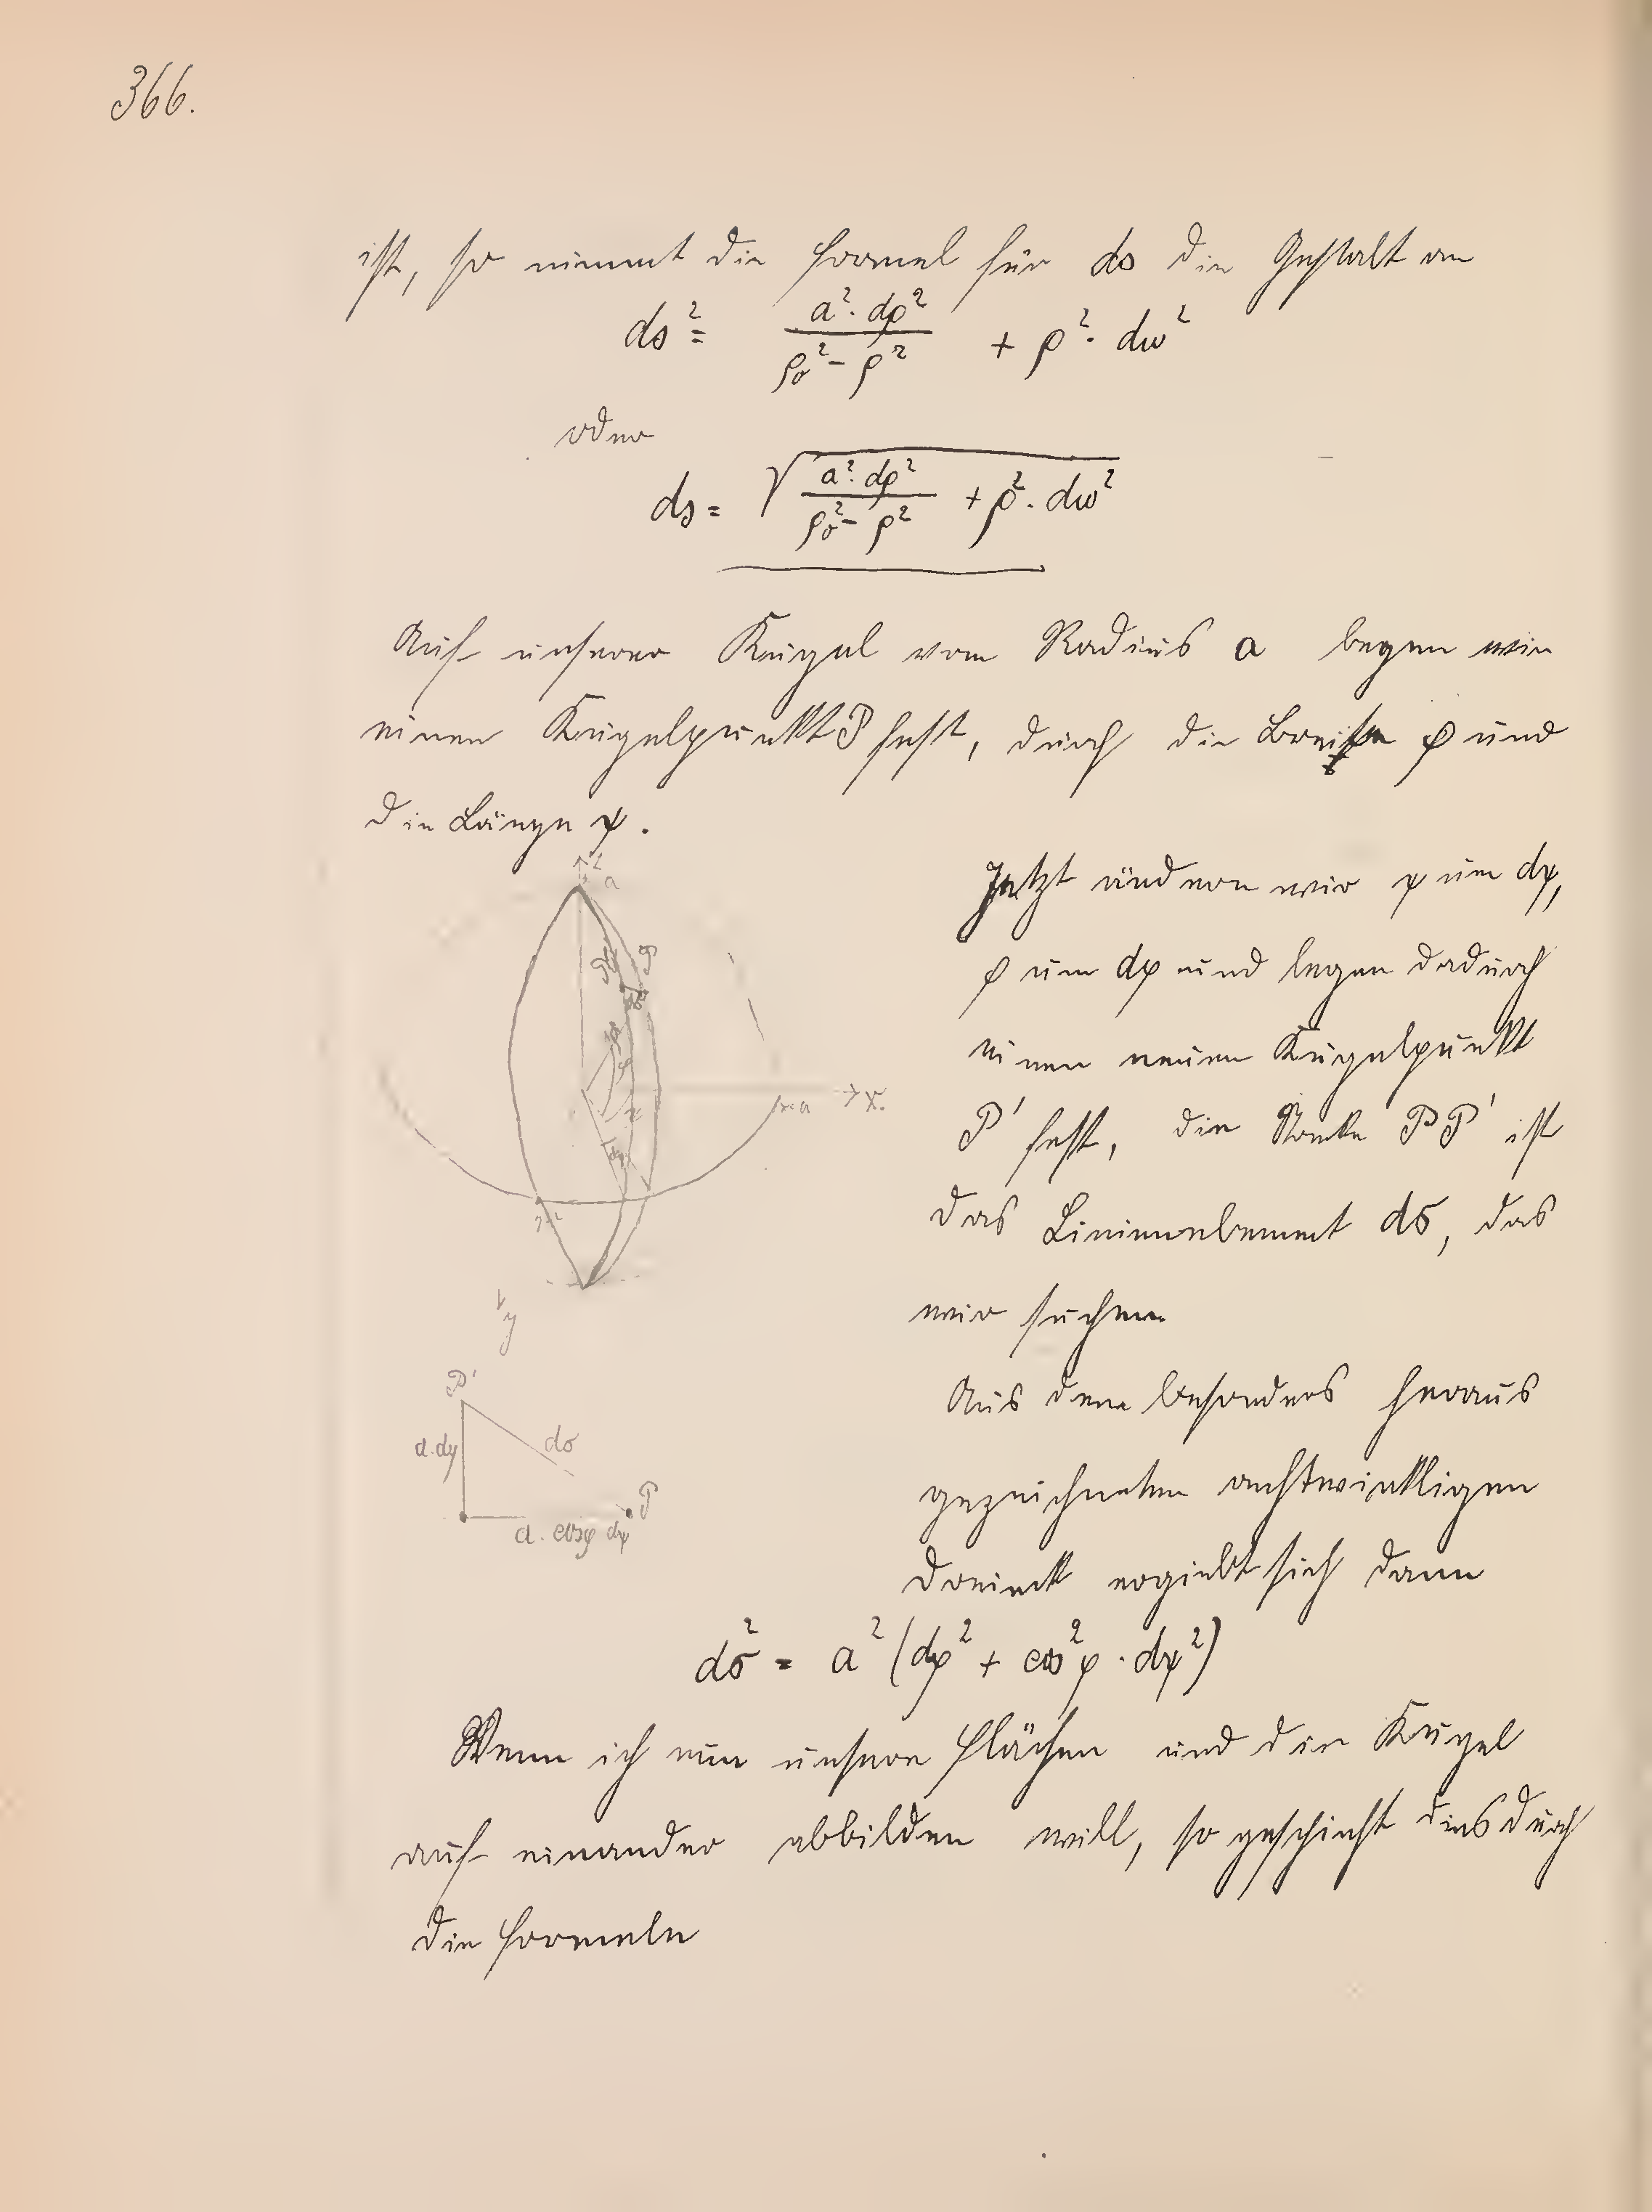 366.
ist, so nimmt die Formel für ds die Gestalt an
ds² = a²·dρ² / (ρ₀² - ρ²) + ρ²·dω²
oder
ds = √(a²·dρ² / (ρ₀² - ρ²) + ρ²·dω²)
Auf unserer Kugel vom Radius a legen wir
einen Kugelpunkt P fest, durch die Breite φ und
die Länge ψ.
Jetzt ändern wir ψ um dψ,
φ um dφ und legen dadurch
einen neuen Kugelpunkt
P' fest, die Strecke PP' ist
das Linienelement dσ, das
wir suchen
Aus dem besonders heraus
gezeichneten rechtwinkligen
Dreieck ergiebt sich dann
z
a
P'
P
dσ
dφ
φ
ψ
dψ
x=a
→ x.
y
P'
a·dφ
dσ
P
a·cosφ dψ
dσ² = a² (dφ² + cos²φ · dψ²)
Wenn ich nun unsere Flächen und die Kugel
auf einander abbilden will, so geschieht dies durch
die Formeln